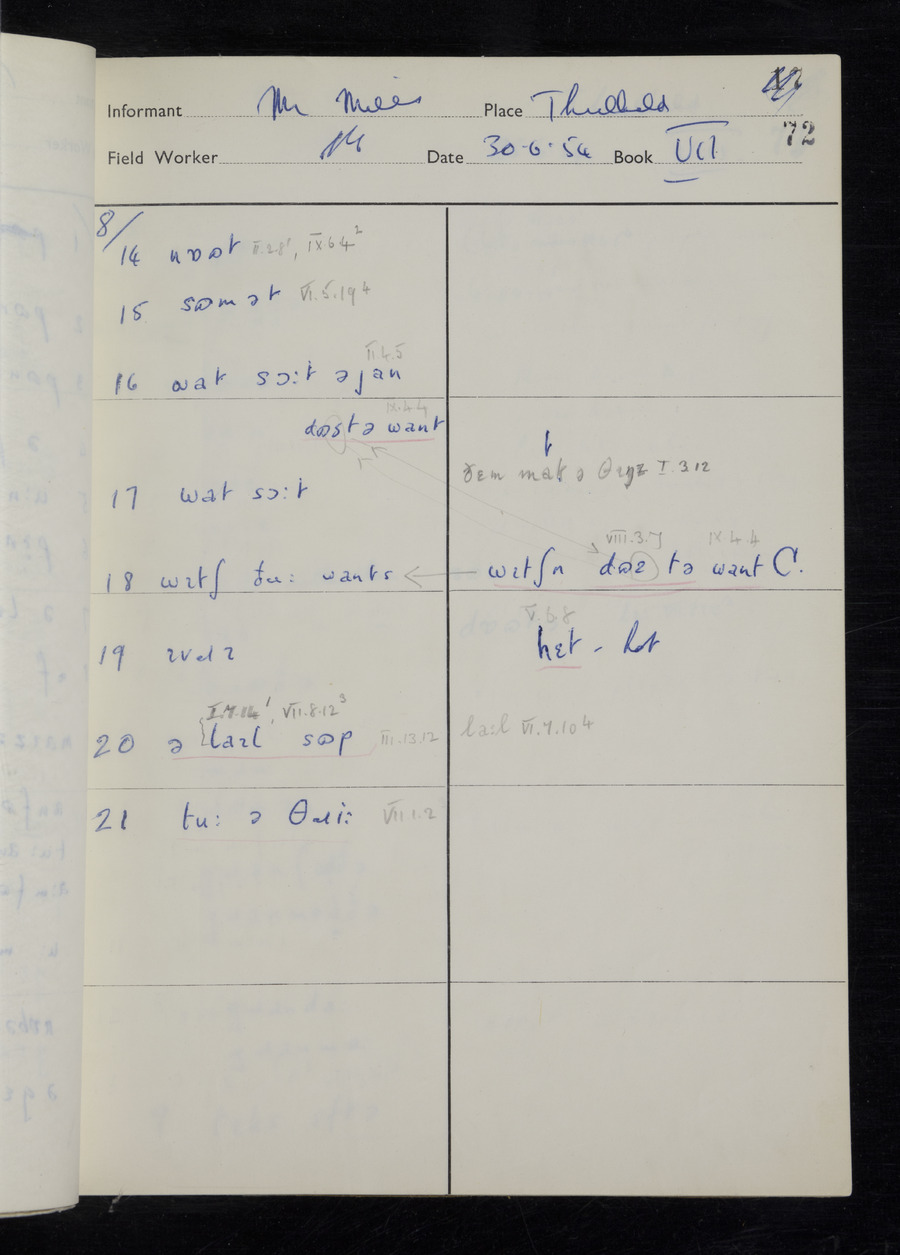 Informant Mr Miles Place Threlkeld
72
Field Worker Date 30·6·54 Book VII
8/
14 nɒət II.2.8¹, IX.6.4²
15 sɷmət VI.5.19⁴
II.4.5
16 wat sɔːt əjan
IX.4.4
dɷstə want
ðɛm mak ə θɪŋz I.3.12
17 wat sɔːt
VIII.3.7 IX.4.4
18 wɪtʃ ðuː wants ← wɪtʃn dɷz tə want C.
V.6.8
19 ɪvəlz hɛt - hot
I.7.14¹, VII.8.12³
20 ə laɪl sɷp III.13.12 laːl VI.7.10⁴
21 tuː ə θɹiː VII.1.2